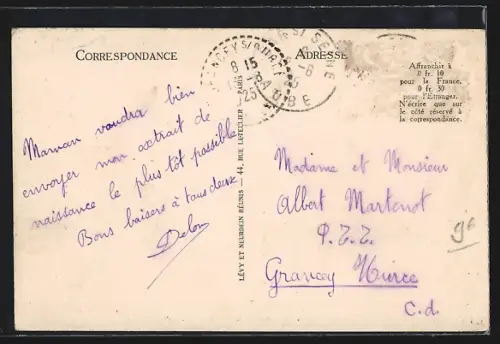 CORRESPONDANCE
ADRESSE
Affranchir à
0 fr. 10
pour la France,
0 fr. 30
pour l'Étranger.
N'écrire que sur
le côté réservé à
la correspondance.
8 15
25
AUBE
S/ SEINE
Maman voudra bien
envoyer mon extrait de
naissance le plus tôt possible
Bons baisers à tous deux
LÉVY ET NEURDEIN RÉUNIS — 44, RUE LETELLIER — PARIS
Madame et Monsieur
Albert Martenot
Grancey
C.d.